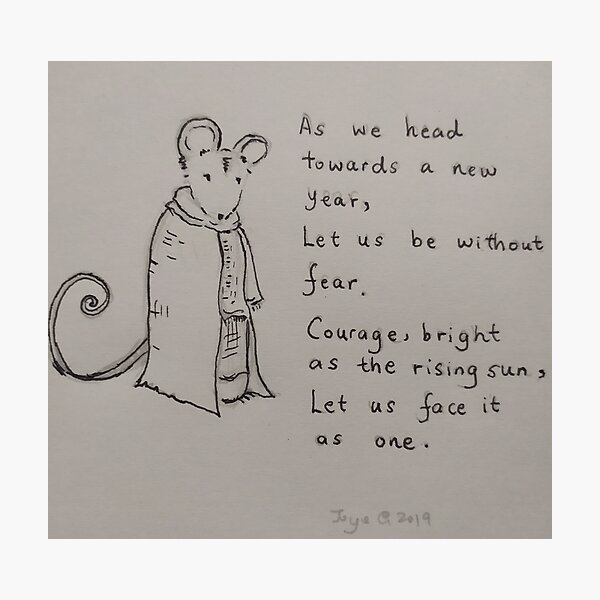 As we head
towards a new
year,
Let us be without
fear.
Courage, bright
as the rising sun,
Let us face it
as one.
2019